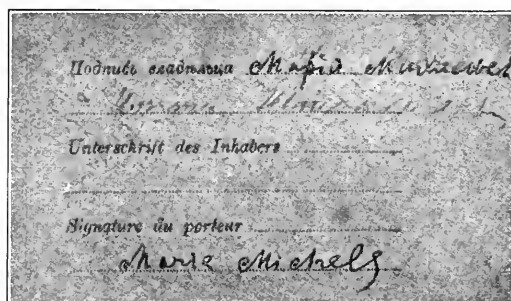 Подпись владѣльца Марiя
Unterschrift des Inhabers
Signature du porteur
Marie Michels